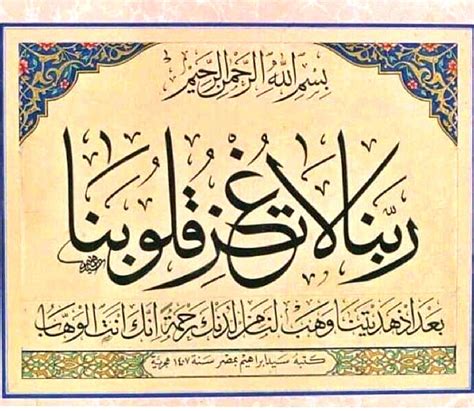 بسم الله الرحمن الرحيم
ربنا لا تزغ قلوبنا
بعد إذ هديتنا وهب لنا من لدنك رحمة إنك أنت الوهاب
كتبه سيد ابراهيم بمصر سنة ١٤٠٧ هجرية